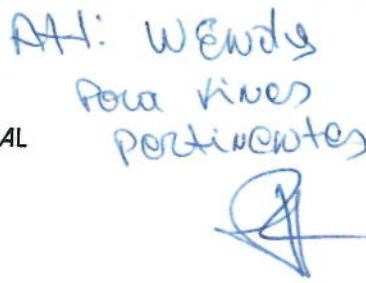 Att: Wendy
Para fines
AL
pertinentes